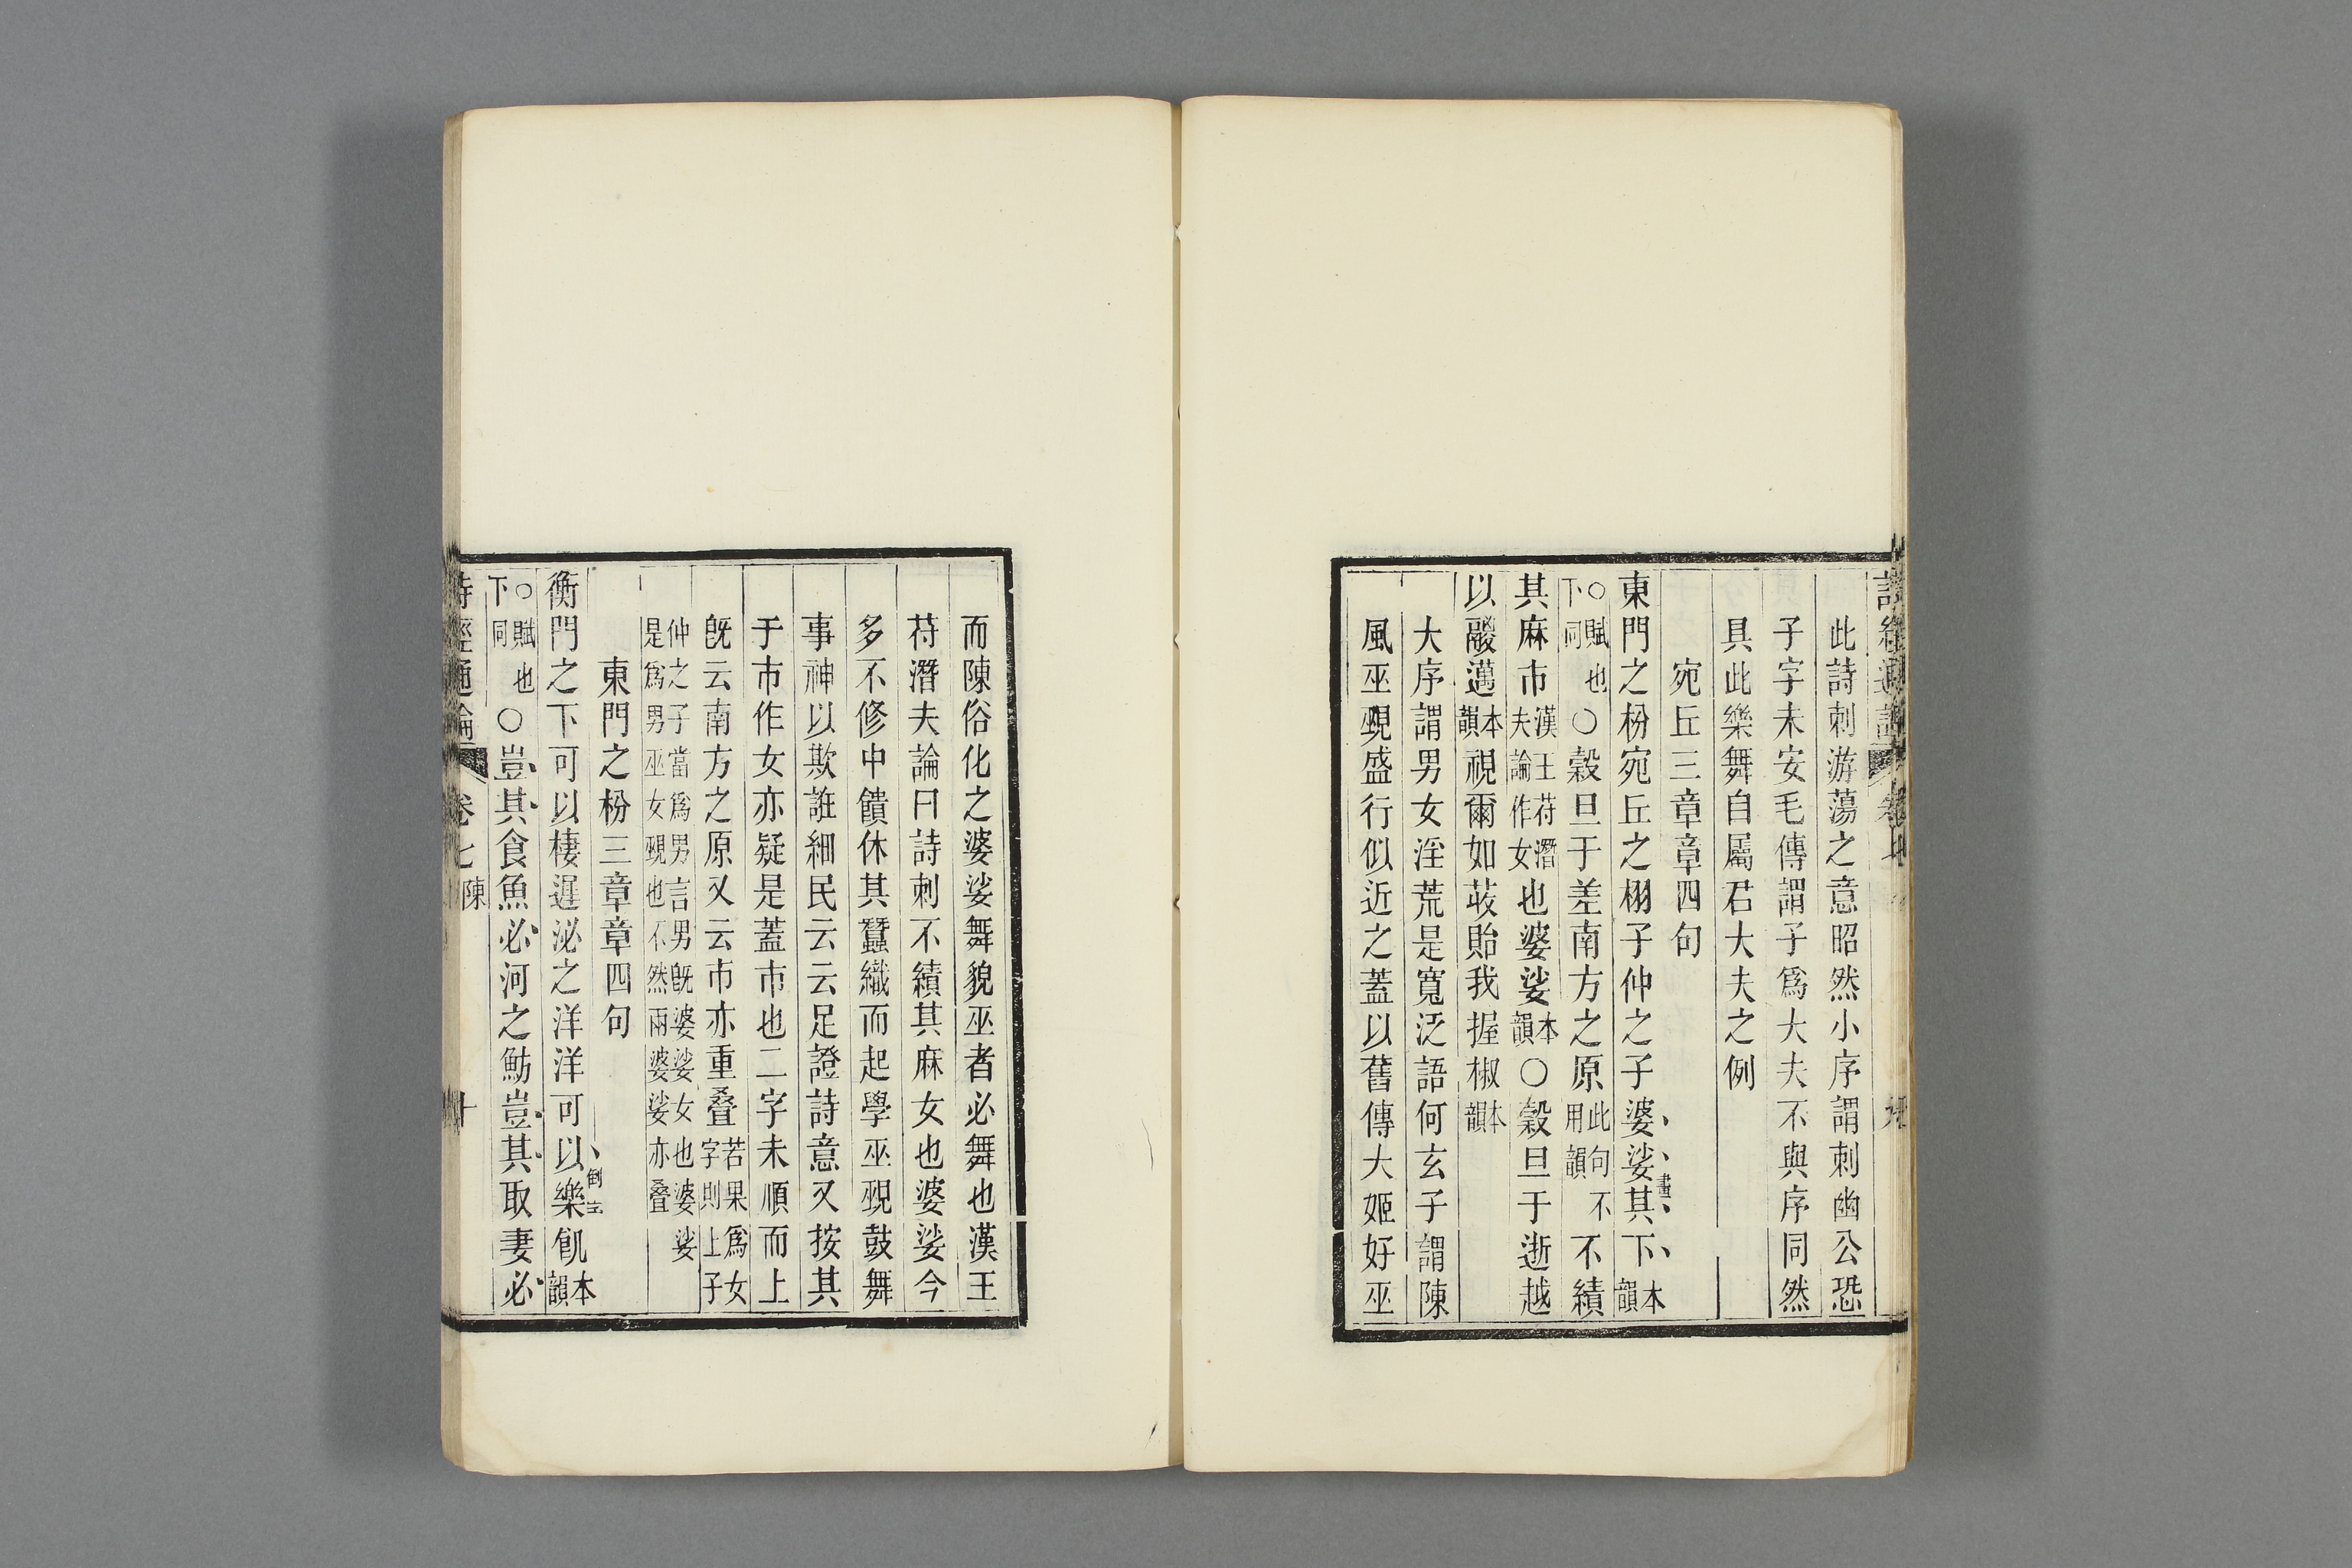 此詩刺游蕩之意昭然小序謂刺幽公恐
子字未安毛傳謂子爲大夫不與序同然
具此樂舞自屬君大夫之例
宛丘三章章四句
東門之枌宛丘之栩子仲之子婆娑其下本韻
畫
○賦也下同○穀旦于差南方之原此句不用韻不績
其麻市漢王苻潛夫論作女也婆娑本韻○穀旦于逝越
以鬷邁本韻視爾如荍貽我握椒本韻
大序謂男女淫荒是寬泛語何玄子謂陳
風巫覡盛行似近之蓋以舊傳大姬好巫
而陳俗化之婆娑舞貌巫者必舞也漢王
苻潛夫論曰詩刺不績其麻女也婆娑今
多不修中饋休其蠶織而起學巫覡鼓舞
事神以欺誑細民云云足證詩意又按其
于市作女亦疑是蓋市也二字未順而上
既云南方之原又云市亦重叠若果爲女字則上子
仲之子當爲男言男既婆娑女也婆娑
是爲男巫女覡也不然兩婆娑亦叠
東門之枌三章章四句
衡門之下可以棲遲泌之洋洋可以樂飢本韻
○賦也下同○豈其食魚必河之魴豈其取妻必
卷七 陳 十